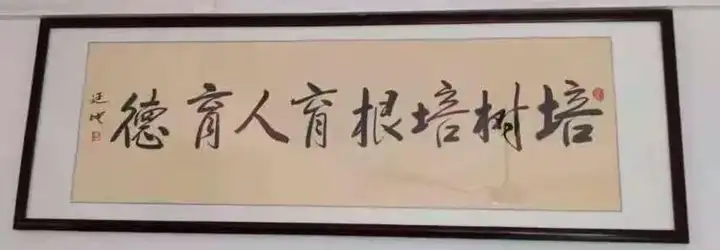 培树培根育人育德